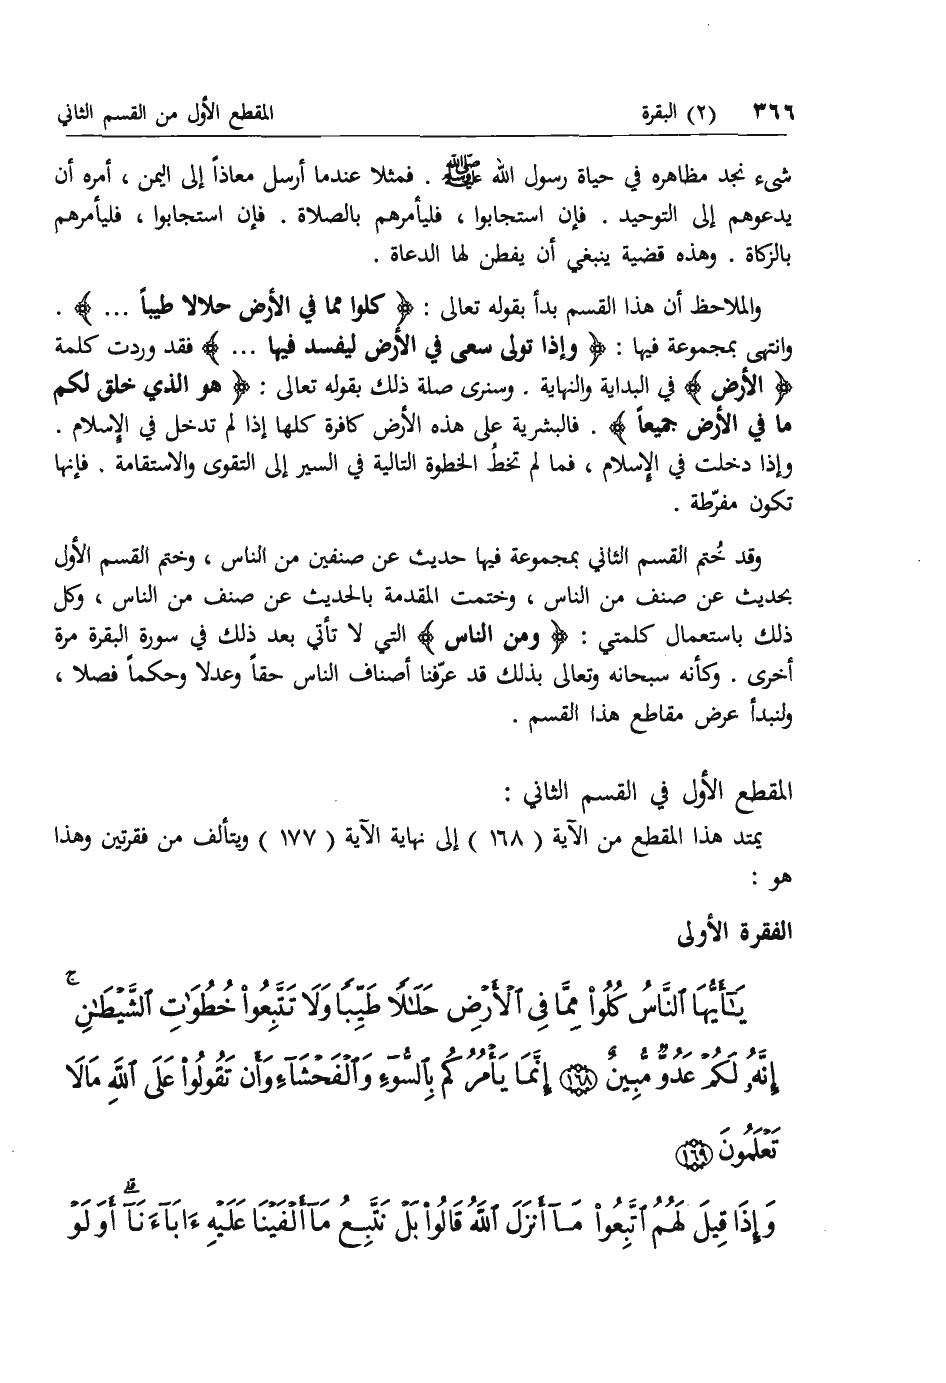 ٣٦٦ (٢) البقرة المقطع الأول من القسم الثاني
شىء نجد مظاهره في حياة رسول الله ﷺ . فمثلا عندما أرسل معاذاً إلى اليمن ، أمره أن
يدعوهم إلى التوحيد . فإن استجابوا ، فليأمرهم بالصلاة . فإن استجابوا ، فليأمرهم
بالزكاة . وهذه قضية ينبغي أن يفطن لها الدعاة .
والملاحظ أن هذا القسم بدأ بقوله تعالى : ﴿ كلوا مما في الأرض حلالا طيباً ... ﴾ .
وانتهى بمجموعة فيها : ﴿ وإذا تولى سعى في الأرض ليفسد فيها ... ﴾ فقد وردت كلمة
﴿ الأرض ﴾ في البداية والنهاية . وسنرى صلة ذلك بقوله تعالى : ﴿ هو الذي خلق لكم
ما في الأرض جميعاً ﴾ . فالبشرية على هذه الأرض كافرة كلها إذا لم تدخل في الإسلام .
وإذا دخلت في الإسلام ، فما لم تخطُ الخطوة التالية في السير إلى التقوى والاستقامة . فإنها
تكون مفرّطة .
وقد خُتم القسم الثاني بمجموعة فيها حديث عن صنفين من الناس ، وختم القسم الأول
بحديث عن صنف من الناس ، وختمت المقدمة بالحديث عن صنف من الناس ، وكل
ذلك باستعمال كلمتي : ﴿ ومن الناس ﴾ التي لا تأتي بعد ذلك في سورة البقرة مرة
أخرى . وكأنه سبحانه وتعالى بذلك قد عرّفنا أصناف الناس حقاً وعدلا وحكماً فصلا ،
ولنبدأ عرض مقاطع هذا القسم .
المقطع الأول في القسم الثاني :
يمتد هذا المقطع من الآية ( ١٦٨ ) إلى نهاية الآية ( ١٧٧ ) ويتألف من فقرتين وهذا
هو :
الفقرة الأولى
يَـٰٓأَيُّهَا ٱلنَّاسُ كُلُوا۟ مِمَّا فِى ٱلْأَرْضِ حَلَـٰلًا طَيِّبًا وَلَا تَتَّبِعُوا۟ خُطُوَٰتِ ٱلشَّيْطَـٰنِ ۚ
إِنَّهُۥ لَكُمْ عَدُوٌّ مُّبِينٌ ﴿١٦٨﴾ إِنَّمَا يَأْمُرُكُم بِٱلسُّوٓءِ وَٱلْفَحْشَآءِ وَأَن تَقُولُوا۟ عَلَى ٱللَّهِ مَا لَا
تَعْلَمُونَ ﴿١٦٩﴾
وَإِذَا قِيلَ لَهُمُ ٱتَّبِعُوا۟ مَآ أَنزَلَ ٱللَّهُ قَالُوا۟ بَلْ نَتَّبِعُ مَآ أَلْفَيْنَا عَلَيْهِ ءَابَآءَنَآ ۗ أَوَلَوْ